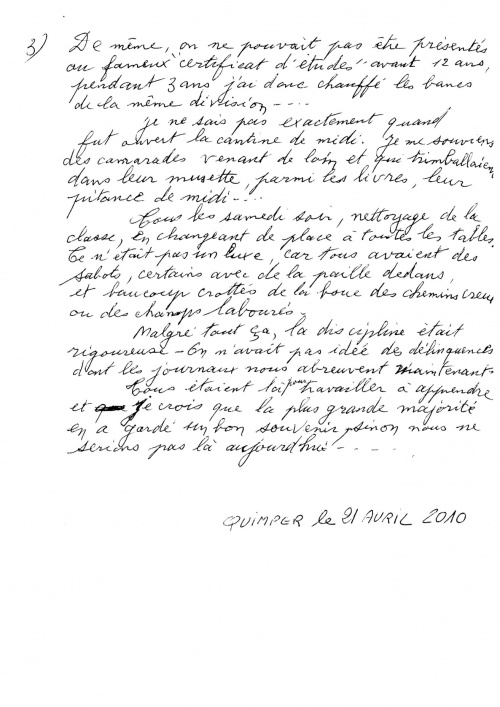 3) De même, on ne pouvait pas être présentés
au fameux "certificat d'études" avant 12 ans,
pendant 3 ans j'ai donc chauffé les bancs
de la même division - - - -
je ne sais pas exactement quand
fut ouvert la cantine de midi. Je me souviens
des camarades venant de loin et qui trimballaien
dans leur musette, parmi les livres, leur
pitance de midi - . . .
Tous les samedi soir, nettoyage de la
classe, en changeant de place à toutes les tables.
Ce n'était pas un luxe, car tous avaient des
sabots, certains avec de la paille dedans,
et beaucoup crottés de la boue des chemins creux
ou des champs labourés -
Malgré tout ça, la discipline était
rigoureuse - On n'avait pas idée des délinquences
dont les journaux nous abreuvent maintenant
Tous étaient là pour travailler à apprendre
et je crois que la plus grande majorité
en a gardé un bon souvenir, sinon nous ne
serions pas là aujourdhui - - - - -
QUIMPER le 21 AVRIL 2010